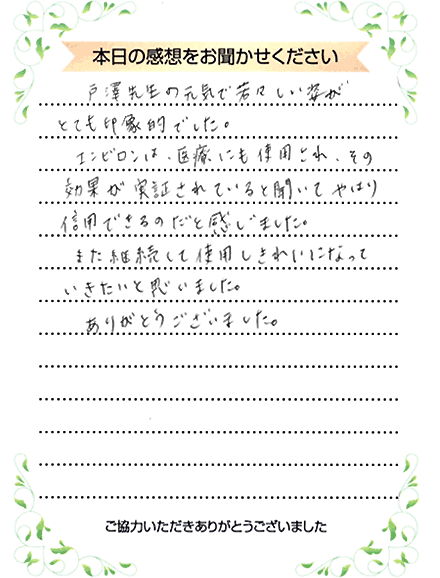 本日の感想をお聞かせください
戸澤先生の元気で若々しい姿が
とても印象的でした。
エンビロンは、医療にも使用され、その
効果が実証されていると聞いてやはり
信用できるのだと感じました。
また継続して使用しきれいになって
いきたいと思いました。
ありがとうございました。
ご協力いただきありがとうございました